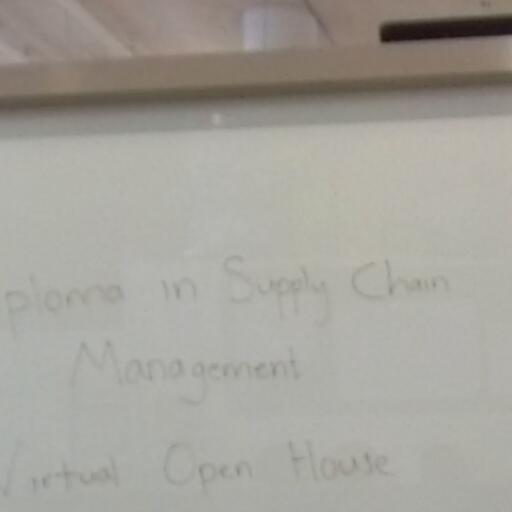 ploma in Supply Chain
Management
Virtual Open House